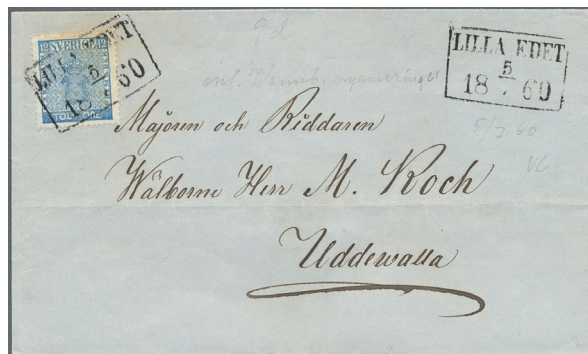 12 SVERIGE 12
TOLF ÖRE
LILLA EDET
5
18 60
LILLA EDET
5
18 7 60
Majoren och Riddaren
Wälborne Herr M. Koch
Uddewalla
5/7 60
VG